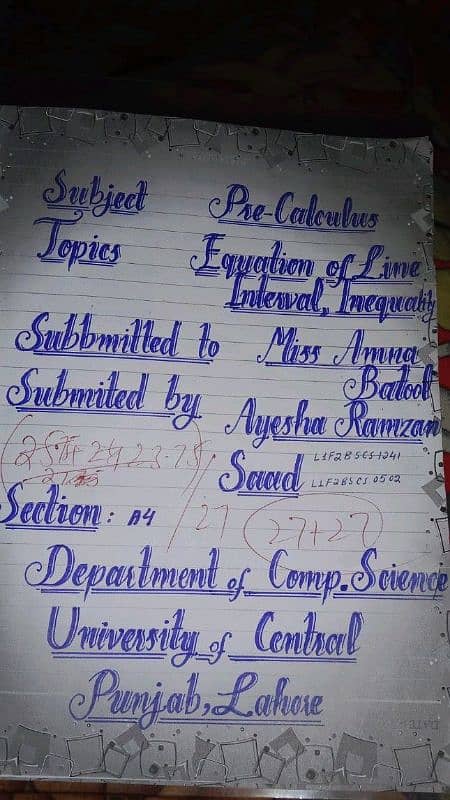 Subject Pre-Calculus
Topics Equation of Line
Interval, Inequality
Subbmitted to Miss Amna
Batool
Submited by Ayesha Ramzan
L1F2BSCS1241
Saad L1F2BSCS0502
Section: A4
27
27+27
Department of Comp. Science
University of Central
Punjab, Lahore